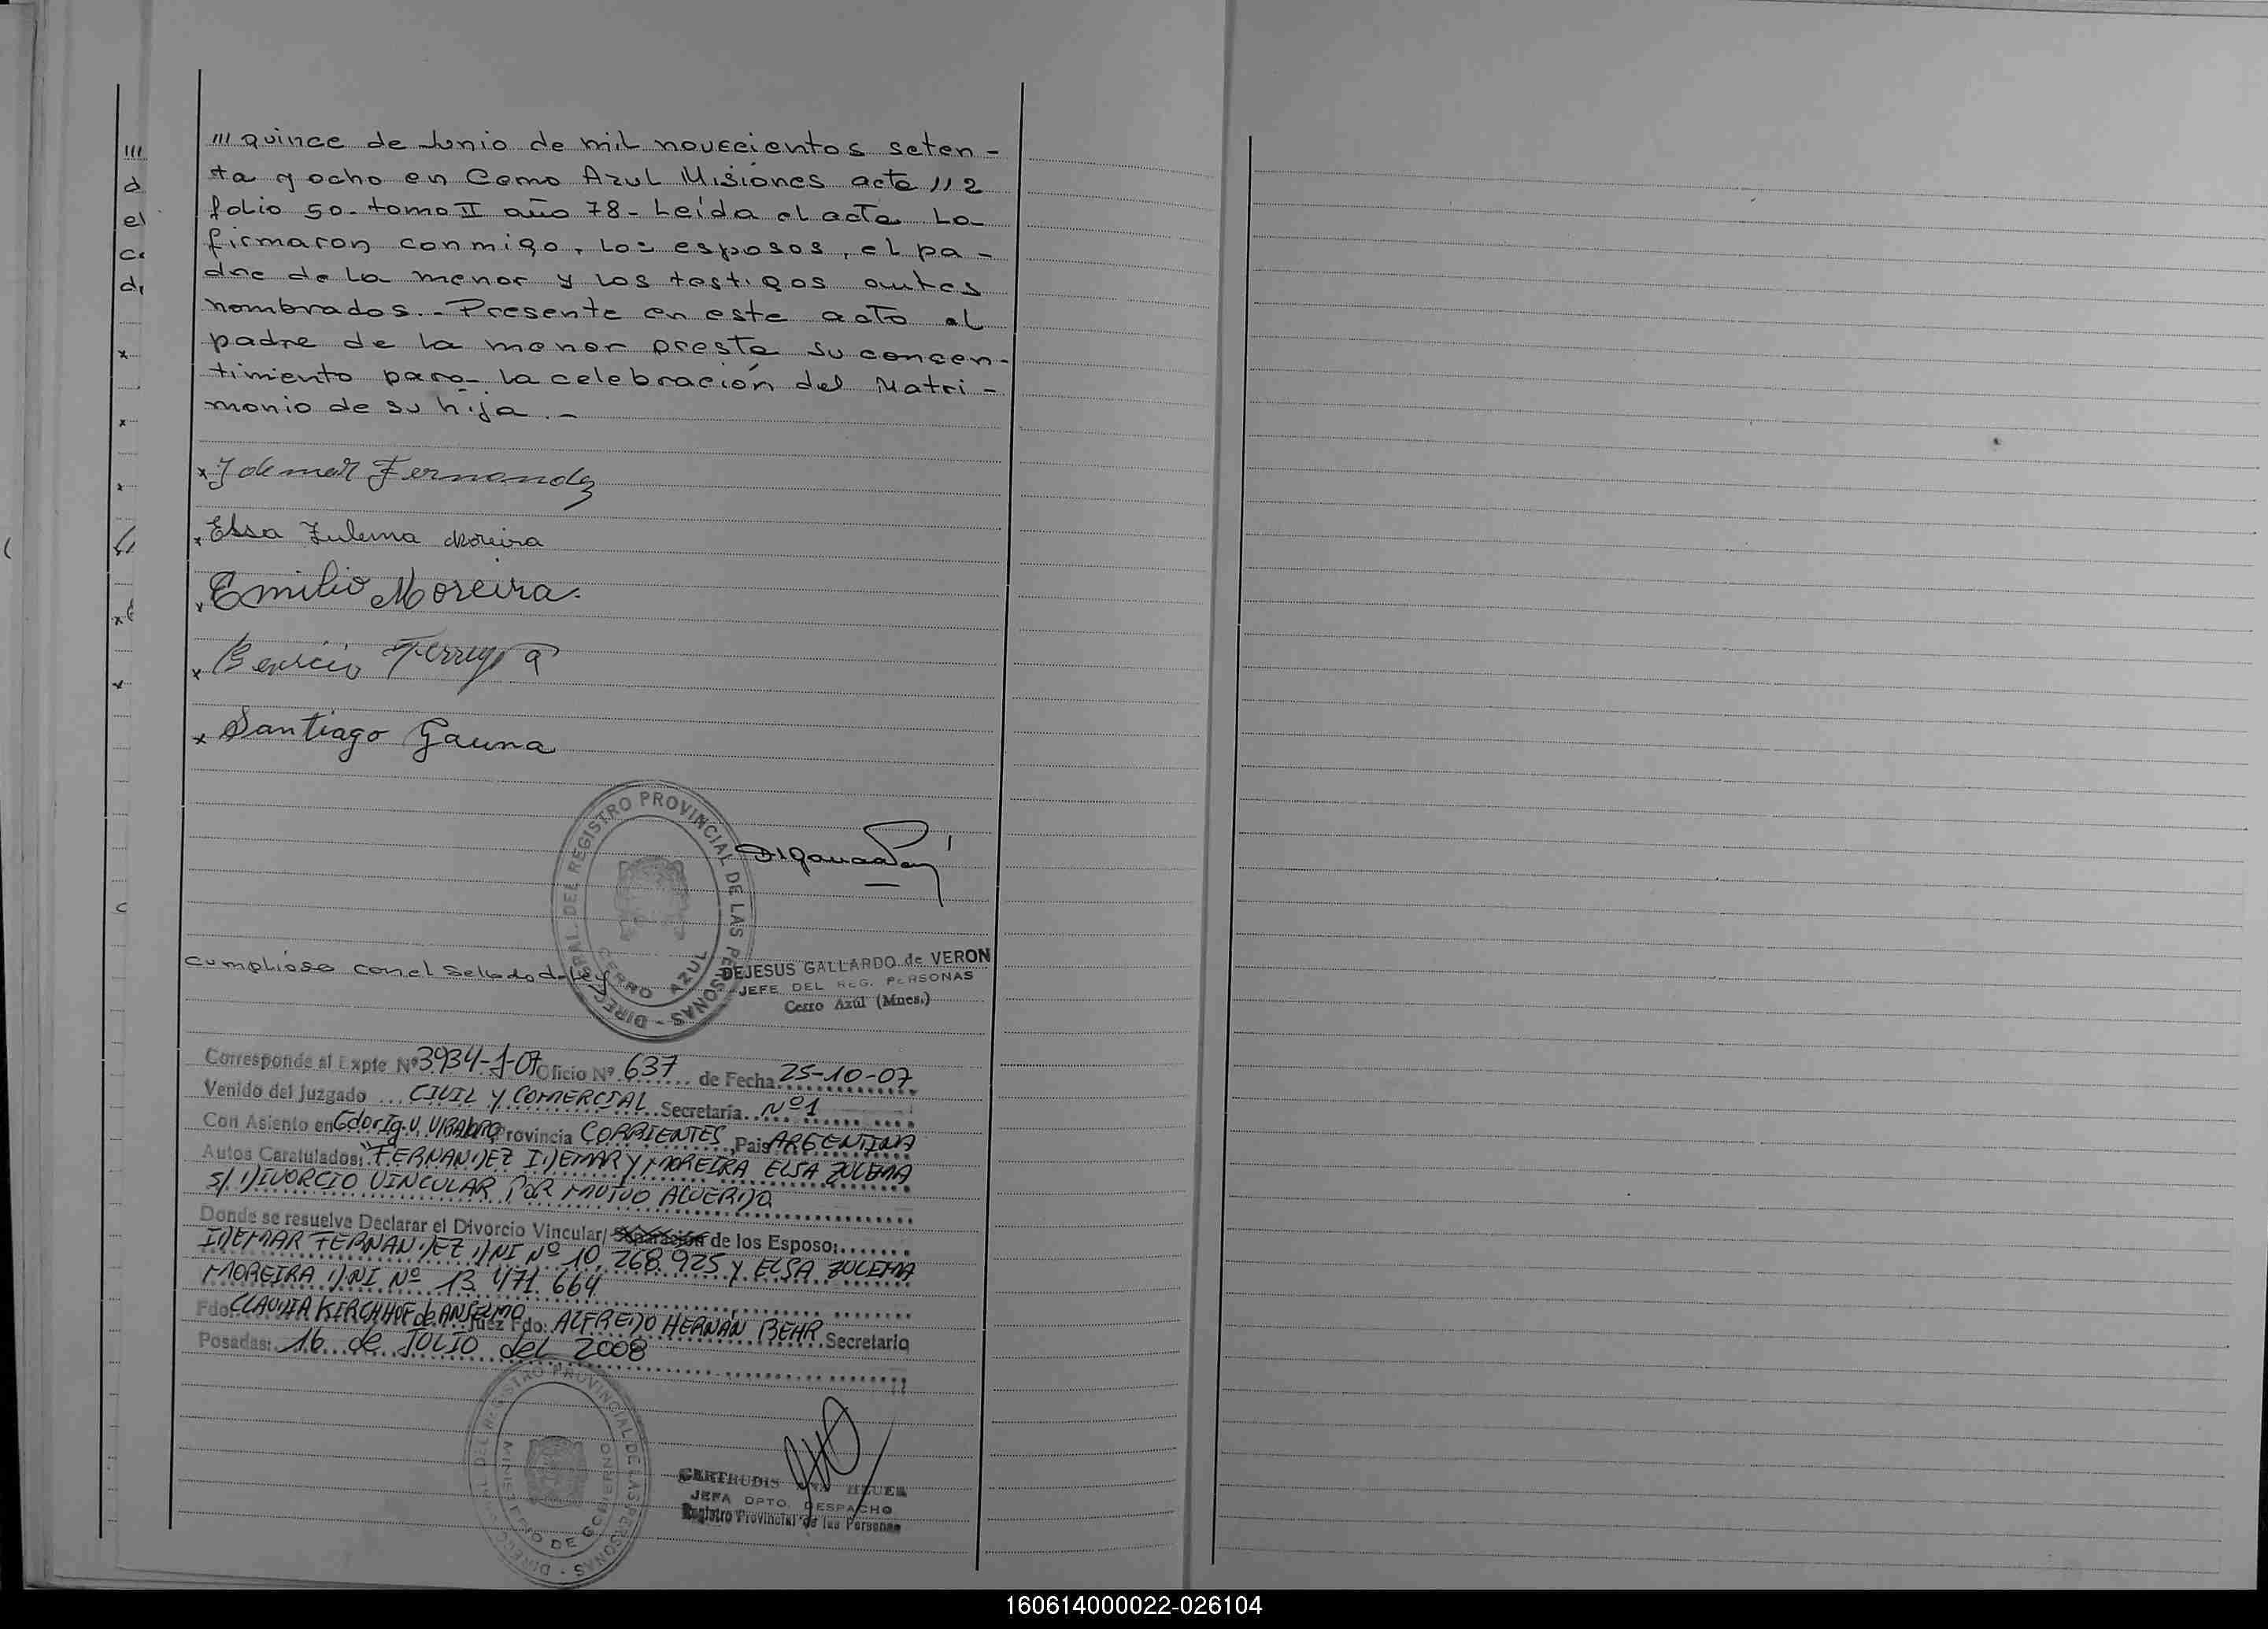 /// quince de Junio de mil novecientos seten-
ta y ocho en Cerro Azul Misiones acta 112
folio 50- tomo II año 78- Leída el acta La
firmaron conmigo, los esposos, el pa-
dre de la menor y los testigos antes
nombrados.- Presente en este acto el
padre de la menor presta su concen-
timiento para la celebración del Matri-
monio de su hija.-
x Idemar Fernandez
x Elsa Zulema Moreira
x Emilio Moreira.
x Ferreyra
x Santiago Gauna
DIREC PAL DEL REGISTRO PROVINCIAL DE LAS PERSONAS -
CERRO AZUL
cumpliose con el Sellado de Ley
DEJESUS GALLARDO de VERON
JEFE DEL REG. PERSONAS
Cerro Azúl (Mnes.)
Corresponde al Expte Nº 3934-J-07 Oficio Nº 637 de Fecha 25-10-07
Venido del Juzgado ... CIVIL Y COMERCIAL Secretaria Nº1
Con Asiento en Gdor Ig. V. Provincia CORRIENTES, Pais ARGENTINA
Autos Caratulados: "FERNANDEZ IDEMAR Y MOREIRA ELSA ZULEMA
S/ DIVORCIO VINCULAR POR MUTUO ACUERDO
Donde se resuelve Declarar el Divorcio Vincular/ Separación de los Esposo:
IDEMAR FERNANDEZ DNI Nº 10.268.925 Y ELSA ZULEMA
MOREIRA DNI Nº 13.471.664
Fdo: CLAUDIA KIRCHHOF de ANSELMO Juez Fdo: ALFREDO HERNÁN BEHR Secretario
Posadas: 16 de JULIO del 2008
REGISTRO PROVINCIAL DE LAS PERSONAS -
MINISTERIO DE GOBIERNO
GERTRUDIS
JEFA DPTO. DESPACHO
Registro Provincial de las Personas
160614000022-026104